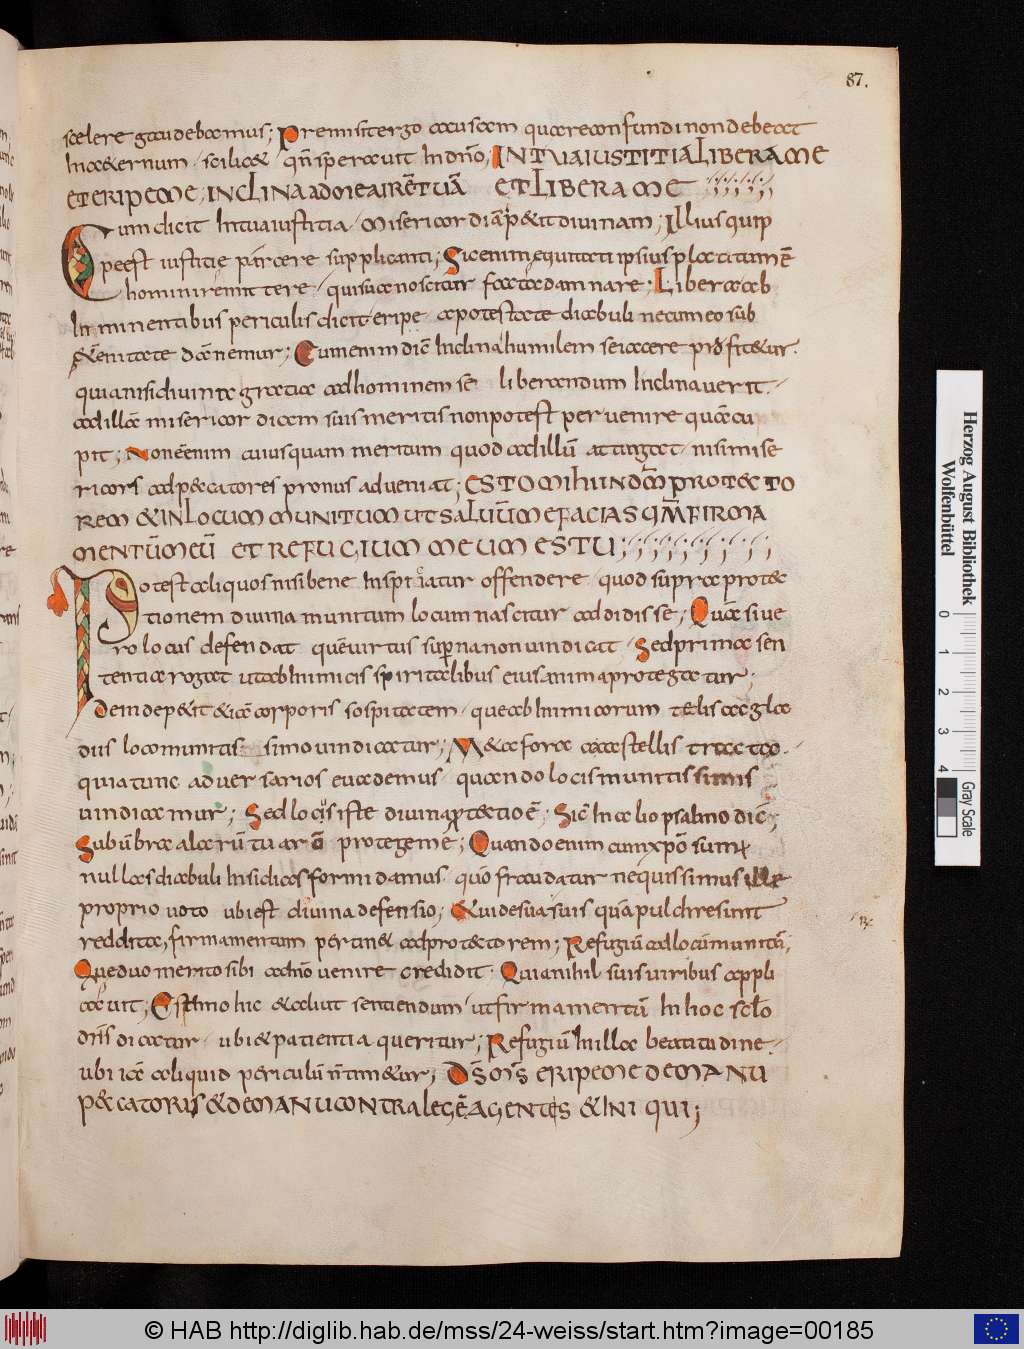 87.
scelere gaudebamus; Premisit ergo causam quare confundi non debeat
In aeternum · scilicet · qm̄ speravit In dn̄o; IN TUA IUSTITIA LIBERA ME
ET ERIPE ME; INCLINA AD ME AUREM TUĀ ET LIBERA ME
Cum dicit In tua iustitia · Misericordiā petit divinam; Illius quip
pe est iustitie parcere supplicanti; Sic enim equitati ipsius placitum ē
homini remittere · qui sua noscitur facta damnare; Libera ab
Inminentibus periculis dicit · eripe a potestate diabuli ne cum eo sub
aeternitate damnemur; Cum enim dic̄ Inclina humilem se iacere profitetur ·
quia nisi divina gratia ad hominem se liberandum Inclinaverit ·
ad illā misericordiam suis meritis non potest pervenire quā cu
pit; Non ē enim cuiusquam meritum quod ad illū attingat · nisi mise
ricors ad peccatores pronus adveniat; ESTO MIHI IN DM̄ PROTECTO
REM & IN LOCUM MUNITUM UT SALUUM ME FACIAS QM̄ FIRMA
MENTŪ MEŪ ET REFUGIUM MEUM ES TU;
Potest aliquos nisi bene Inspiciatur offendere · quod supra protec
tionem divina munitum locum nascitur addidisse; Quasi ve
ro locus defendat quē virtus superna non vindicat · Sed prima sen
tentia rogat ut ab Inimicis spiritalibus eius anima protegatur;
Dein de petit & iā corporis sospitatem · que ab Inimicorum telis ac gla
diis loco munitissimo vindicatur; Metafora a castellis tracta ·
quia tunc adversarios evademus · quando locis munitissimis
vindicamur; Sed locus iste divina protectio ē; Sic̄ In alio psalmo dic̄;
Sub ūbra alarū tuarū protege me; Quando enim cum xp̄o sum;
nullas diabuli Insidias formidamus · quō fraudatur nequissimus ille
proprio voto ubi est divina defensio; Avide sua suis quā pulchre sint
reddita, firmamentum pertinet ad protectorem; Refugiū ad locū munitū;
Que duo merito sibi a dn̄o venire credidit · Quia nihil suis viribus appli
cavit; Estimo hic & aliut sentiendum ut firmamentū In hoc sclō
dn̄s dicatur · ubi & patientia queritur; Refugiū In illa beatitudine ·
ubi iā aliquid periculū n̄ timetur; DS̄ MS̄ ERIPE ME DE MANU
PECCATORIS & DE MANU CONTRA LEGĒ AGENTES & INIQUI;
Herzog August Bibliothek
Wolfenbüttel
0 1 2 3 4
Gray Scale
© HAB http://diglib.hab.de/mss/24-weiss/start.htm?image=00185